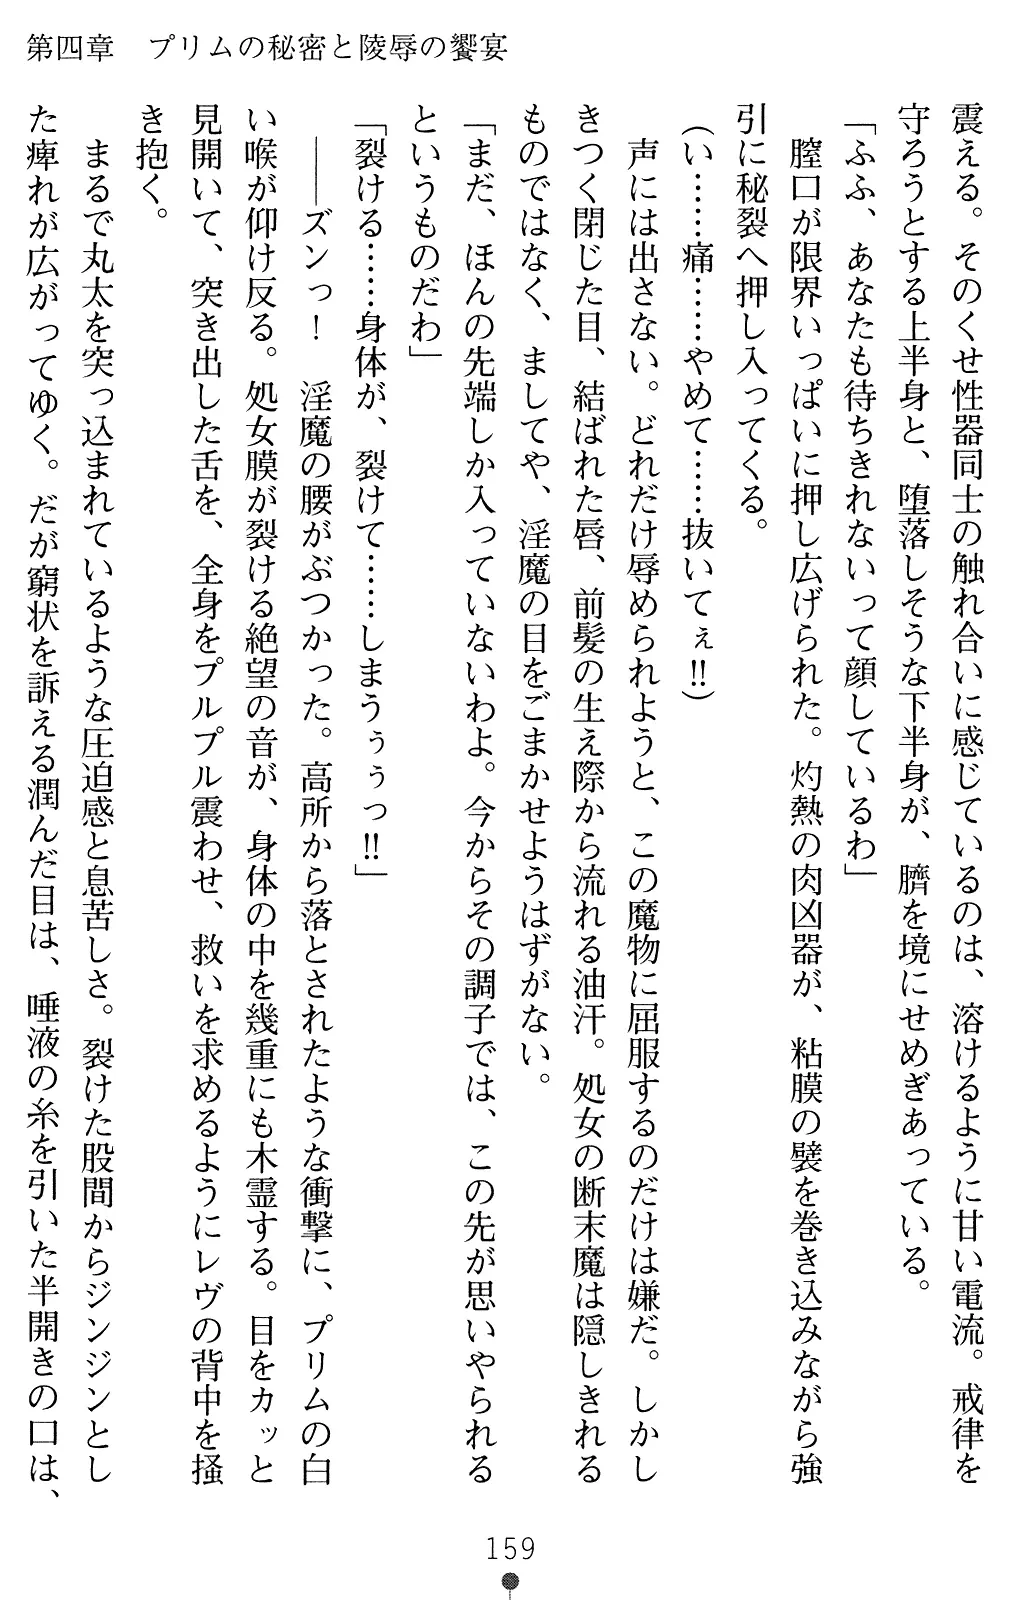 第四章　プリムの秘密と陵辱の饗宴
震える。そのくせ性器同士の触れ合いに感じているのは、溶けるように甘い電流。戒律を
守ろうとする上半身と、堕落しそうな下半身が、臍を境にせめぎあっている。
「ふふ、あなたも待ちきれないって顔しているわ」
　膣口が限界いっぱいに押し広げられた。灼熱の肉凶器が、粘膜の襞を巻き込みながら強
引に秘裂へ押し入ってくる。
（い……痛……やめて……抜いてぇ‼）
　声には出さない。どれだけ辱められようと、この魔物に屈服するのだけは嫌だ。しかし
きつく閉じた目、結ばれた唇、前髪の生え際から流れる油汗。処女の断末魔は隠しきれる
ものではなく、ましてや、淫魔の目をごまかせようはずがない。
「まだ、ほんの先端しか入っていないわよ。今からその調子では、この先が思いやられる
というものだわ」
「裂ける……身体が、裂けて……しまうぅぅっ‼」
　――ズンっ！　淫魔の腰がぶつかった。高所から落とされたような衝撃に、プリムの白
い喉が仰け反る。処女膜が裂ける絶望の音が、身体の中を幾重にも木霊する。目をカッと
見開いて、突き出した舌を、全身をプルプル震わせ、救いを求めるようにレヴの背中を掻
き抱く。
　まるで丸太を突っ込まれているような圧迫感と息苦しさ。裂けた股間からジンジンとし
た痺れが広がってゆく。だが窮状を訴える潤んだ目は、唾液の糸を引いた半開きの口は、
159